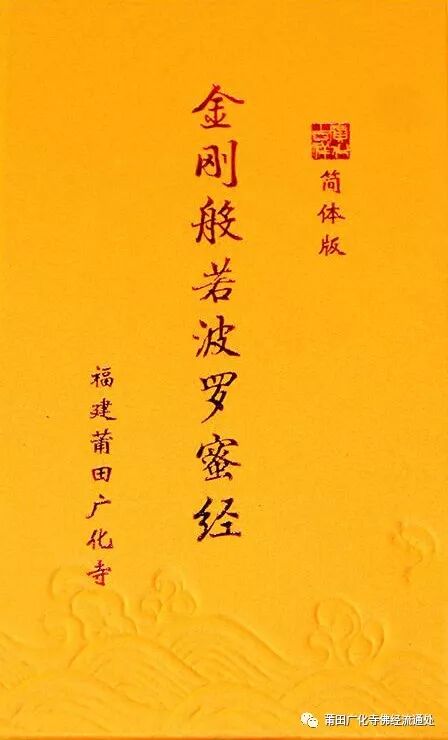 简体版
金刚般若波罗蜜经
福建莆田广化寺
莆田广化寺佛经流通处